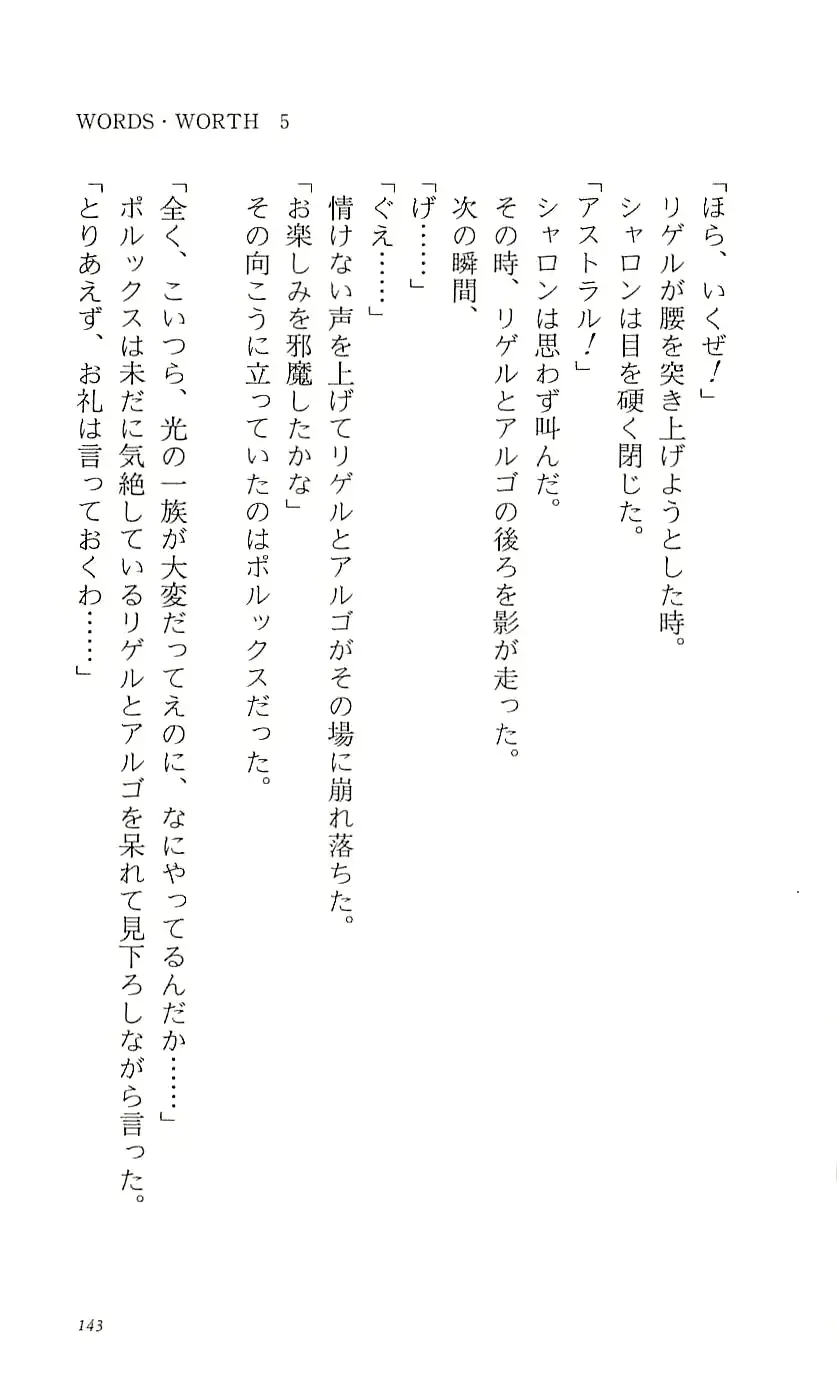 WORDS・WORTH 5
「ほら、いくぜ!」
リゲルが腰を突き上げようとした時。
シャロンは目を硬く閉じた。
「アストラル!」
シャロンは思わず叫んだ。
その時、リゲルとアルゴの後ろを影が走った。
次の瞬間、
「げ……」
「ぐえ……」
情けない声を上げてリゲルとアルゴがその場に崩れ落ちた。
「お楽しみを邪魔したかな」
その向こうに立っていたのはポルックスだった。
「全く、こいつら、光の一族が大変だってえのに、なにやってるんだか……」
ポルックスは未だに気絶しているリゲルとアルゴを呆れて見下ろしながら言った。
「とりあえず、お礼は言っておくわ……」
143